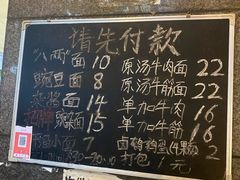 请先付款
"八两"面 10
豌豆面 8
炸酱面 14
豌杂面 15
小面 7
原汤牛肉面 22
原汤牛筋面 22
单加牛肉 16
单加牛筋 16
卤鹌鹑蛋(4颗) 2
打包 元